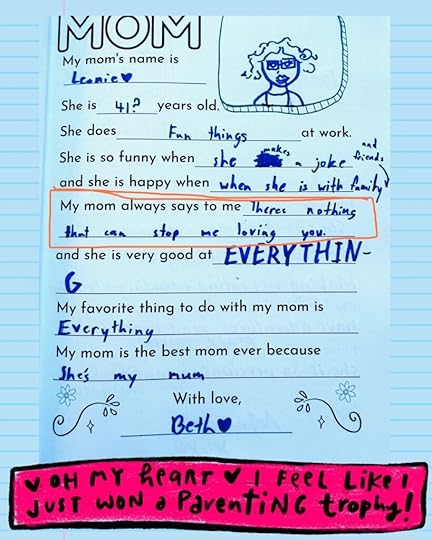 MOM
My mom's name is
Leonie♥
She is 41? years old.
She does Fun things at work.
She is so funny when she makes a joke
and she is happy when when she is with family and friends
My mom always says to me Theres nothing
that can stop me loving you.
and she is very good at EVERYTHIN-
G
My favorite thing to do with my mom is
Everything
My mom is the best mom ever because
She's my mum
With love,
Beth♥
♥ OH MY heart ♥ I FEEL LIKE I
JUST WON a PARENTING trophy!